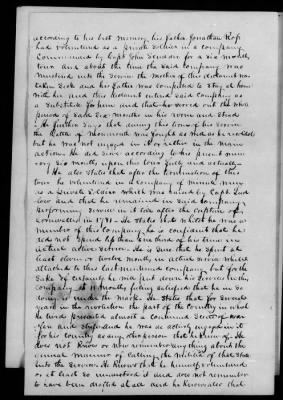 according to his best memory, his father Jonathan
had volunteered as a private soldier in a company
Commanded by Capt John for a six months
tour and about the time the said company was
mustered into the service the mother of this declarant was
taken sick and his father was compelled to stay at home
with her and this declarant entered said company as
a substitute for him and that he served out the whole
period of said six months in his room and stead
He further says that during this tour of his service
the battle of Monmouth was fought as well as he recollects
but he was not engaged in it or rather in the main
action. He did serve according to his present mem-
ory six months upon this tour fully and actually
He also states that after the termination of this
tour he volunteered in a company of minute men
as a private soldier which was raised by Capt
and that he remained in said company
performing service in it till after the capture of
Cornwallis in 1781. He states that whilst he was a
member of this company, he is confident that he
did not spend less than one third of his time in
actual active service. He is sure that he spent at
least eleven or twelve months in active service whilst
attached to this last mentioned company, but for the
sake of certainty he will put down his service in this
company at 10 months feeling satisfied that he in so
doing is under the mark. He states that for several
years in the revolution the part of the country in which
he lived presented almost a continued scene of war-
fare and he was as actively engaged in it
for his country as any other person that he knew of. He
does not know or now remember any thing about the
manner of calling the militia of that State
into the service. He knows that he himself volunteered
or at least so considered it and does not remember
to have been drafted at all and he knows also that